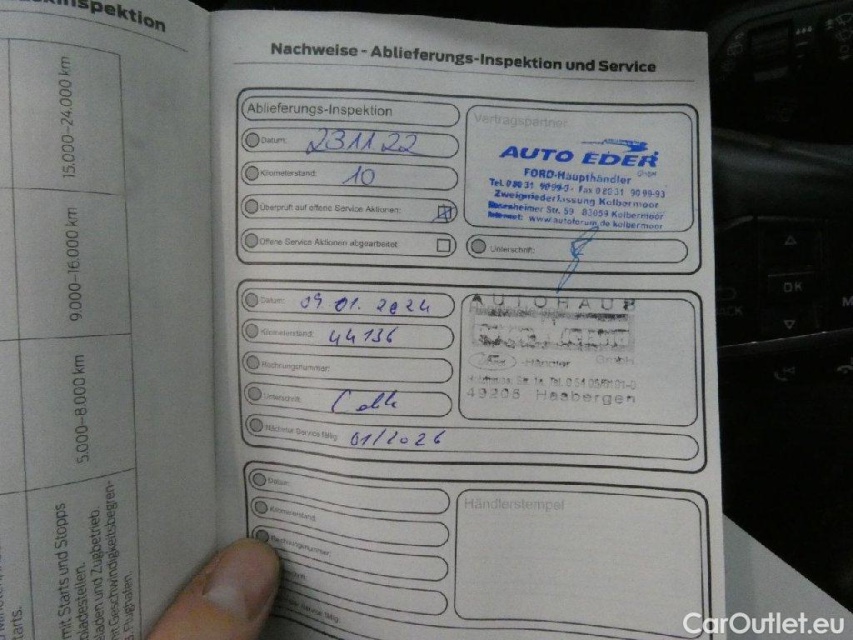 kinspektion
15.000–24.000 km
9.000–16.000 km
5.000–8.000 km
mit Starts und Stopps
aden und Zugbetrieb.
Geschwindigkeitsbegren-
Flughafen.
Nachweise - Ablieferungs-Inspektion und Service
Ablieferungs-Inspektion
Datum: 231122
Kilometerstand: 10
Überprüft auf offene Service Aktionen:
Offene Service Aktionen abgearbeitet:
Vertragspartner
AUTO EDER
GmbH
FORD-Haupthändler
Tel. 0 80 31 90 99-0 - Fax 0 80 31 90 99-93
Zweigniederlassung Kolbermoor
Rosenheimer Str. 59 83059 Kolbermoor
Internet: www.autoforum.de kolbermoor
Unterschrift:
Datum: 09.01.2024
Kilometerstand: 44136
Rechnungsnummer:
Unterschrift:
Nächster Service fällig: 01/2026
AUTOHAUS
Händler GmbH
49205 Hasbergen
Datum:
Kilometerstand:
Rechnungsnummer:
Händlerstempel
OK
CarOutlet.eu